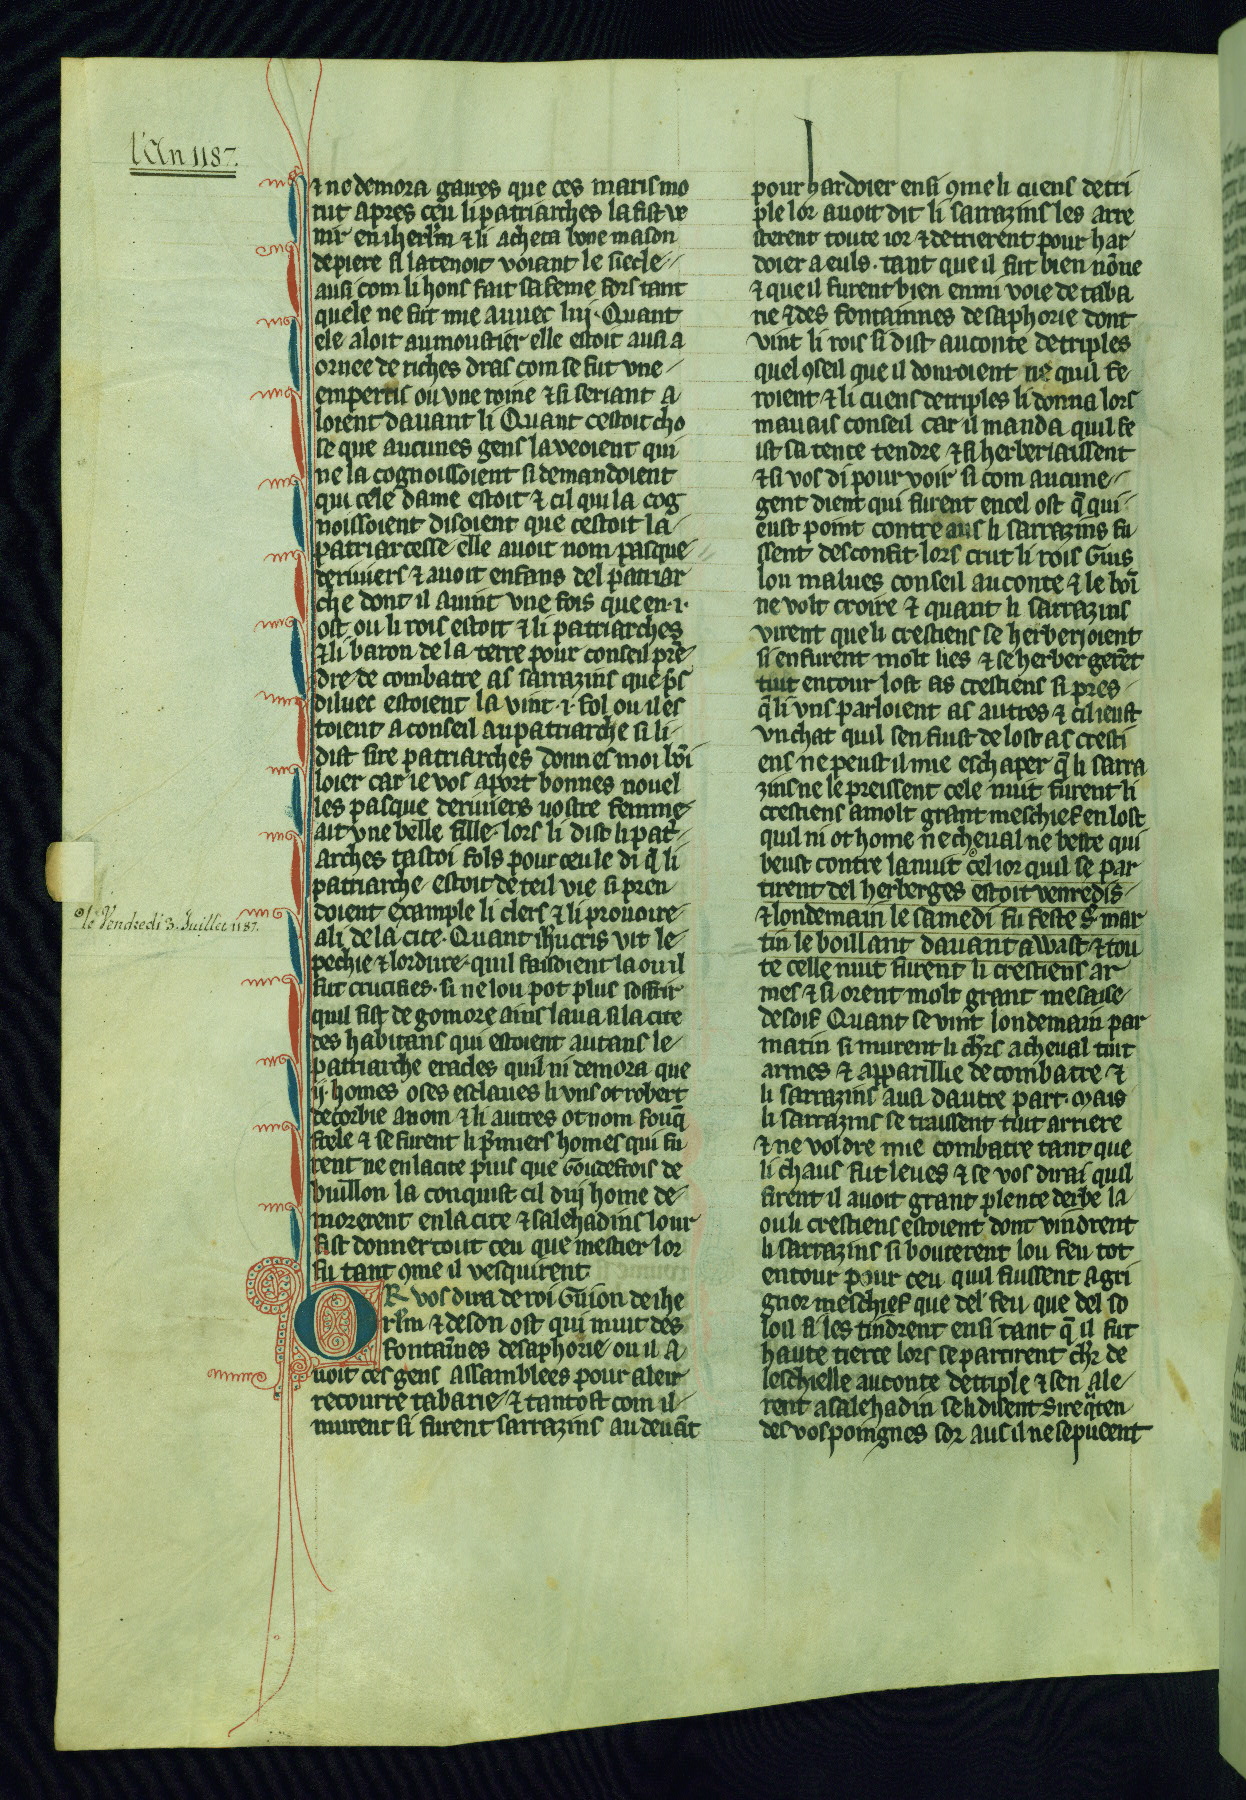 l'An 1187.
⁊ no demora gaires que ces maris mo
rut apres ceu li patriarches la fist ve
nir en iherlm ⁊ li acheta bone maison
de piere si la tenoit voiant le siecle
ausi com li hons fait sa feme fors tant
quele ne fut mie avuec lui. Quant
ele aloit au moustier elle estoit ausi a
ornee de riches dras com se fut vne
emperris ou vne roine ⁊ si seriant a
loient davant li Quant cestoit cho
se que aucunes gens la veoient qui
ne la cognoissoient si demandoient
qui cele dame estoit ⁊ cil qui la cog
noissoient disoient que cestoit la
patriarcesse elle avoit nom pasque
de riviers ⁊ avoit enfans del patriar
che dont il avint vne fois que en .i.
ost ou li rois estoit ⁊ li patriarches
⁊ li baron de la terre pour conseil pre
dre de combatre as sarrazins que ps
diluec estoient la vint .i. fol ou il es
toient a conseil au patriarche si li
dist sire patriarches donnes moi bōi
loier car ie vos aport bonnes novel
les pasque de riviers vostre femme
ait vne belle fille. lors li dist li pat̄
arches tastoi fols pour ceu le di q̄ li
patriarche estoit de teil vie si pren
doient example li clers ⁊ li provoire
le Vendredi 3. Juillet 1187.
ali de la cite. Quant ihucris vit le
pechie ⁊ lordure quil faisoient la ou il
fut crucifies. si ne lou pot plus soffrir
quil fist de gomore ains lava si la cite
des habitans qui estoient autans le
patriarche eracles quil ni demora que
ij. homes oses esclaves li vns ot robert
de corbie a nom ⁊ li autres ot nom fouq̄
fiele ⁊ se furent li pmiers homes qui fu
rent ne en la cite puis que Goudefrois de
buillon la conquist cil dui home de
morerent en la cite ⁊ salehadins lour
fist donner tout ceu que mestier lor
fu tant 9me il vesquirent
OR vos dira de roi Guion de ihe
rlm ⁊ de son ost qui muit des
fontaines de saphorie ou il a
voit ces gens assamblees pour aleir
recourre tabarie ⁊ tantost com il
murent si furent sarrazins au devāt
pour hardoier ensi 9me li cuens de tri
ple lor avoit dit li sarrazins les arre
sterent toute ior ⁊ detrierent pour har
doier a euls. tant que il fut bien nōne
⁊ que il furent bien enmi voie de taba
rie ⁊ des fontainnes de saphorie dont
vint li rois si dist au conte de triples
quel 9seil que il donroient ne quil fe
roient ⁊ li cuens de triples li donna lors
mauais conseil car il manda quil fe
ist sa tente tendre ⁊ si herberiaissent
⁊ si vos di pour voir si com aucune
gent dient qui furent en cel ost q̄ qui
eust point contre aus li sarrazins fu
ssent desconfit. lors crut li rois Guis
lou malues conseil au conte ⁊ le boī
ne volt croire ⁊ quant li sarrazins
virent que li crestiens se herberjoient
si en furent molt lies ⁊ se herbergerēt
tuit entour lost as crestiens si pres
q̄ li vns parloient as autres ⁊ cil i eust
vn chat quil sen fuist de lost as cresti
ens ne peust il mie eschaper q̄ li sarra
zins ne le preissent cele nuit furent li
crestiens a molt grant meschief en lost
quil ni ot home ne cheval ne beste qui
beust contre la nuit cel ior quil se par
tirent del herberges estoit venredis
⁊ londemain le samedi fu feste S. mar
tin le boillant davant awast ⁊ tou
te celle nuit furent li crestiens ar
mes ⁊ si orent molt grant mesaise
de soif Quant se vint londemain par
matin si murent li chrs a cheval tuit
armes ⁊ apparillie de combatre ⁊
li sarrazins ausi dautre part. Mais
li sarrazins se traissent tuit arriere
⁊ ne voldre mie combatre tant que
li chaus fut leves ⁊ se vos dirai quil
firent il avoit grant plente derbe la
ou li crestiens estoient dont vindrent
li sarrazins si bouterent lou feu tot
entour pour ceu quil fuissent a gri
gnor meschief que del feu que del so
lou si les tindrent ensi tant q̄ il fut
haute tierce lors se partirent chr de
leschielle au conte de triple ⁊ sen ale
rent a salehadin se li disent Sire q̄ ten
des vos poingnes sor aus il ne se pueent